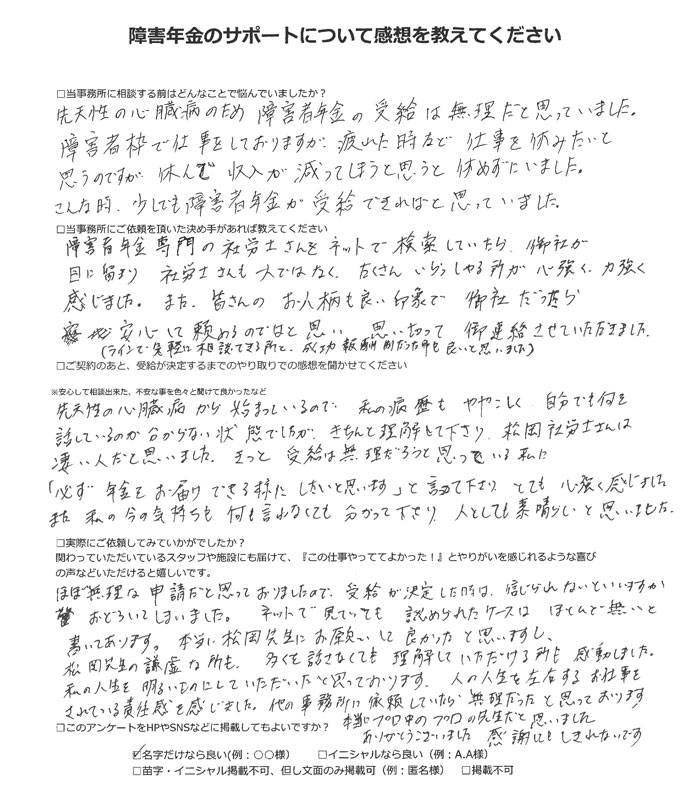 障害年金のサポートについて感想を教えてください
□当事務所に相談する前はどんなことで悩んでいましたか？
先天性の心臓病のため 障害者年金の受給は無理だと思っていました。
障害者枠で仕事をしておりますが、疲れた時など 仕事を休みたいと
思うのですが 休んで 収入が減ってしまうと思うと 休めずにいました。
こんな時、少しでも障害者年金が受給できればと思っていました。
□当事務所にご依頼を頂いた決め手があれば教えてください
障害者年金専門の社労士さんをネットで検索していたら、御社が
目に留まり 社労士さんも一人ではなく、たくさんいらっしゃる所が心強く、力強く
感じました。また、皆さんの お人柄も良い印象で 御社だったら
安心して頼めるのではと思い 思い切って 御連絡させていただきました。
(ラインで気軽に相談できる所と、成功報酬制だった所も良いと思いました)
□ご契約のあと、受給が決定するまでのやり取りでの感想を聞かせてください
※安心して相談出来た、不安な事を色々と聞けて良かったなど
先天性の心臓病から始まっているので 私の病歴も ややこしく、自分でも何を
話しているのか分からない状態でしたが、きちんと理解して下さり、松岡社労士さんは
凄い人だと思いました。きっと 受給は無理だろうと思っている私に
「必ず年金をお届けできる様にしたいと思います」と言って下さり とても 心強く感じました
また 私の今の気持ちも 何も言わなくても 分かって下さり、人としても素晴らしいと思いました。
□実際にご依頼してみていかがでしたか？
関わっていただいているスタッフや施設にも届けて、『この仕事やっててよかった！』とやりがいを感じれるような喜び
の声などいただけると嬉しいです。
ほぼ無理な申請だと思っておりましたので、受給が決定した時は、信じられないといいますか
おどろいてしまいました。ネットで見ていても 認められたケースは ほとんど無いと
書いてあります。本当に松岡先生にお願いして良かったと思いますし、
松岡先生の謙虚な所も、多くを話さなくても理解していただける所も感動しました。
私の人生を明るいものにしていただいたと思っております、人の人生を左右するお仕事を
されている責任感を感じました。他の事務所に依頼していたら無理だったと思っております
□このアンケートをHPやSNSなどに掲載してもよいですか？ 本当にプロ中のプロの先生だと思いました
ありがとうございました 感謝してもしきれないです
☑名字だけなら良い(例：○○様) □イニシャルなら良い（例：A.A様）
□苗字・イニシャル掲載不可、但し文面のみ掲載可（例：匿名様） □掲載不可